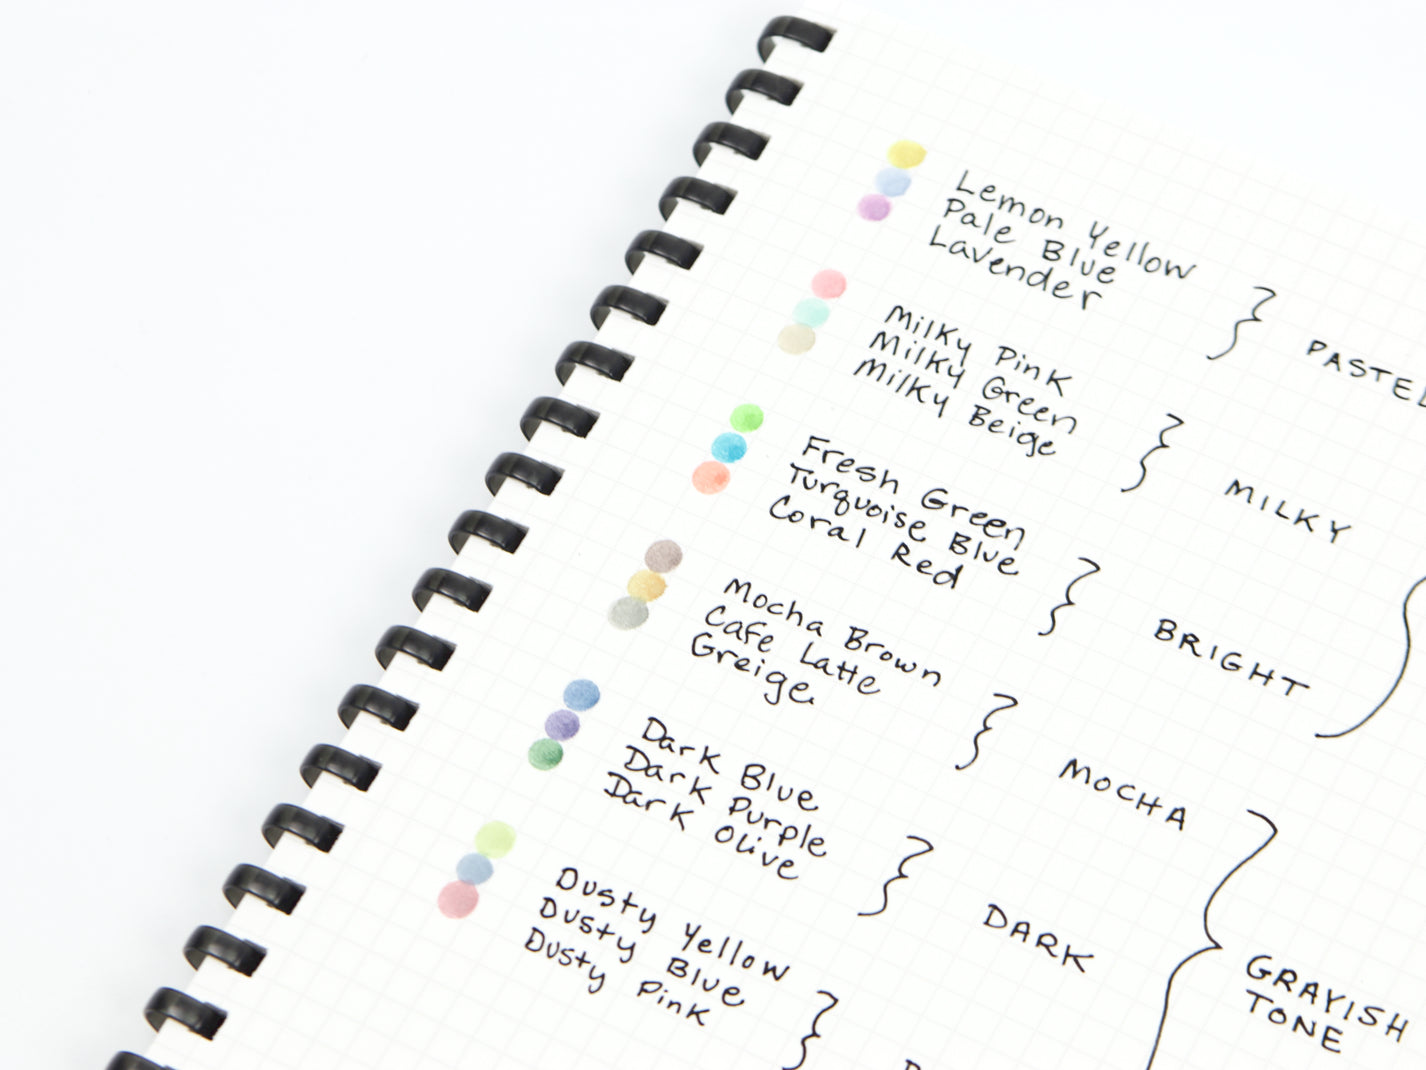 Lemon Yellow
Pale Blue
Lavender
PASTEL
Milky Pink
Milky Green
Milky Beige
MILKY
Fresh Green
Turquoise Blue
Coral Red
BRIGHT
Mocha Brown
Cafe Latte
Greige
MOCHA
Dark Blue
Dark Purple
Dark Olive
DARK
Dusty Yellow
Dusty Blue
Dusty Pink
GRAYISH
TONE